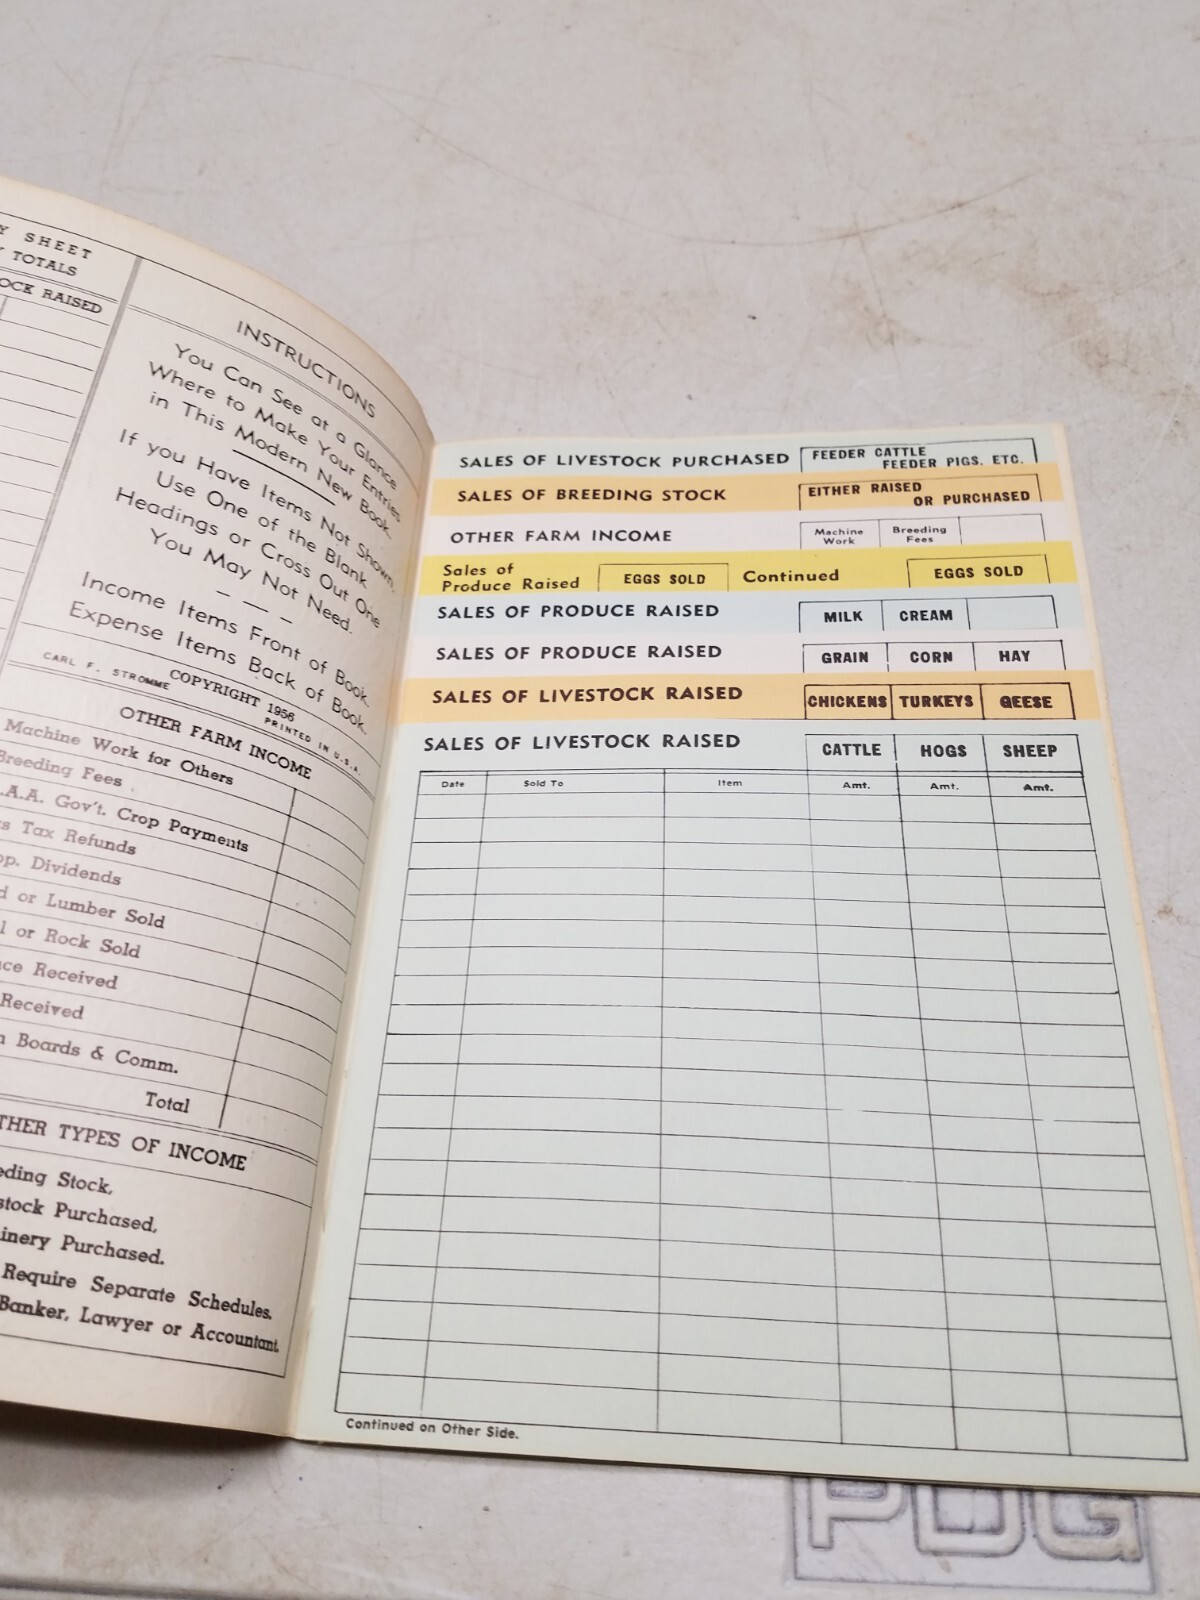 SHEET
TOTALS
RAISED
INSTRUCTIONS
You Can See at a Glance
Where to Make Your Entries
in This Modern New Book.
If you Have Items Not Shown,
Use One of the Blank
Headings or Cross Out One
You May Not Need.
— — —
Income Items Front of Book.
Expense Items Back of Book.
COPYRIGHT 1956
CARL F. STROMME PRINTED IN U.S.A.
OTHER FARM INCOME
Machine Work for Others
Breeding Fees
A.A. Gov't. Crop Payments
Tax Refunds
Dividends
or Lumber Sold
or Rock Sold
Received
Received
Boards & Comm.
Total
TYPES OF INCOME
Stock,
Purchased,
Purchased.
Require Separate Schedules.
Banker, Lawyer or Accountant.
SALES OF LIVESTOCK PURCHASED FEEDER CATTLE
FEEDER PIGS. ETC.
SALES OF BREEDING STOCK EITHER RAISED
OR PURCHASED
OTHER FARM INCOME Machine Work Breeding Fees
Sales of Produce Raised EGGS SOLD Continued EGGS SOLD
SALES OF PRODUCE RAISED MILK CREAM
SALES OF PRODUCE RAISED GRAIN CORN HAY
SALES OF LIVESTOCK RAISED CHICKENS TURKEYS GEESE
SALES OF LIVESTOCK RAISED CATTLE HOGS SHEEP
Date Sold To Item Amt. Amt. Amt.
Continued on Other Side.
PDG